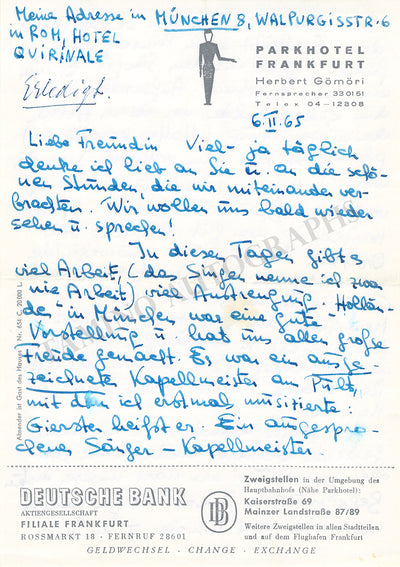 Meine Adresse in MÜNCHEN 8, WALPURGISSTR. 6
in ROM, HOTEL
QUIRINALE
Erledigt.
PARKHOTEL
FRANKFURT
Herbert Gömöri
Fernsprecher 330151
Telex 04-12808
6.II.65
Liebe Freundin Viel- ja täglich
denke ich lieb an Sie u. an die schö-
nen Stunden, die wir miteinander ver-
brachten. Wir wollen uns bald wieder
sehen u. sprechen!
In diesen Tagen gibt's
viel Arbeit, (das Singen nenne ich zwar
nie Arbeit) viel Anstrengung. "Hollän-
der" in München war eine gute
Vorstellung u. hat uns allen große
Freude gemacht. Es war ein ausge
zeichneter Kapellmeister am Pult,
mit dem ich erstmals musizierte:
Gierster heißt er. Ein ausgespro-
chener Sänger-Kapellmeister.
Absender ist Gast des Hauses Nr. 651 C 20000 L.
TAMINO AUTOGRAPHS
DEUTSCHE BANK
AKTIENGESELLSCHAFT
FILIALE FRANKFURT
ROSSMARKT 18 · FERNRUF 28601
DB
Zweigstellen in der Umgebung des
Hauptbahnhofs (Nähe Parkhotel):
Kaiserstraße 69
Mainzer Landstraße 87/89
Weitere Zweigstellen in allen Stadtteilen
und auf dem Flughafen Frankfurt
GELDWECHSEL · CHANGE · EXCHANGE